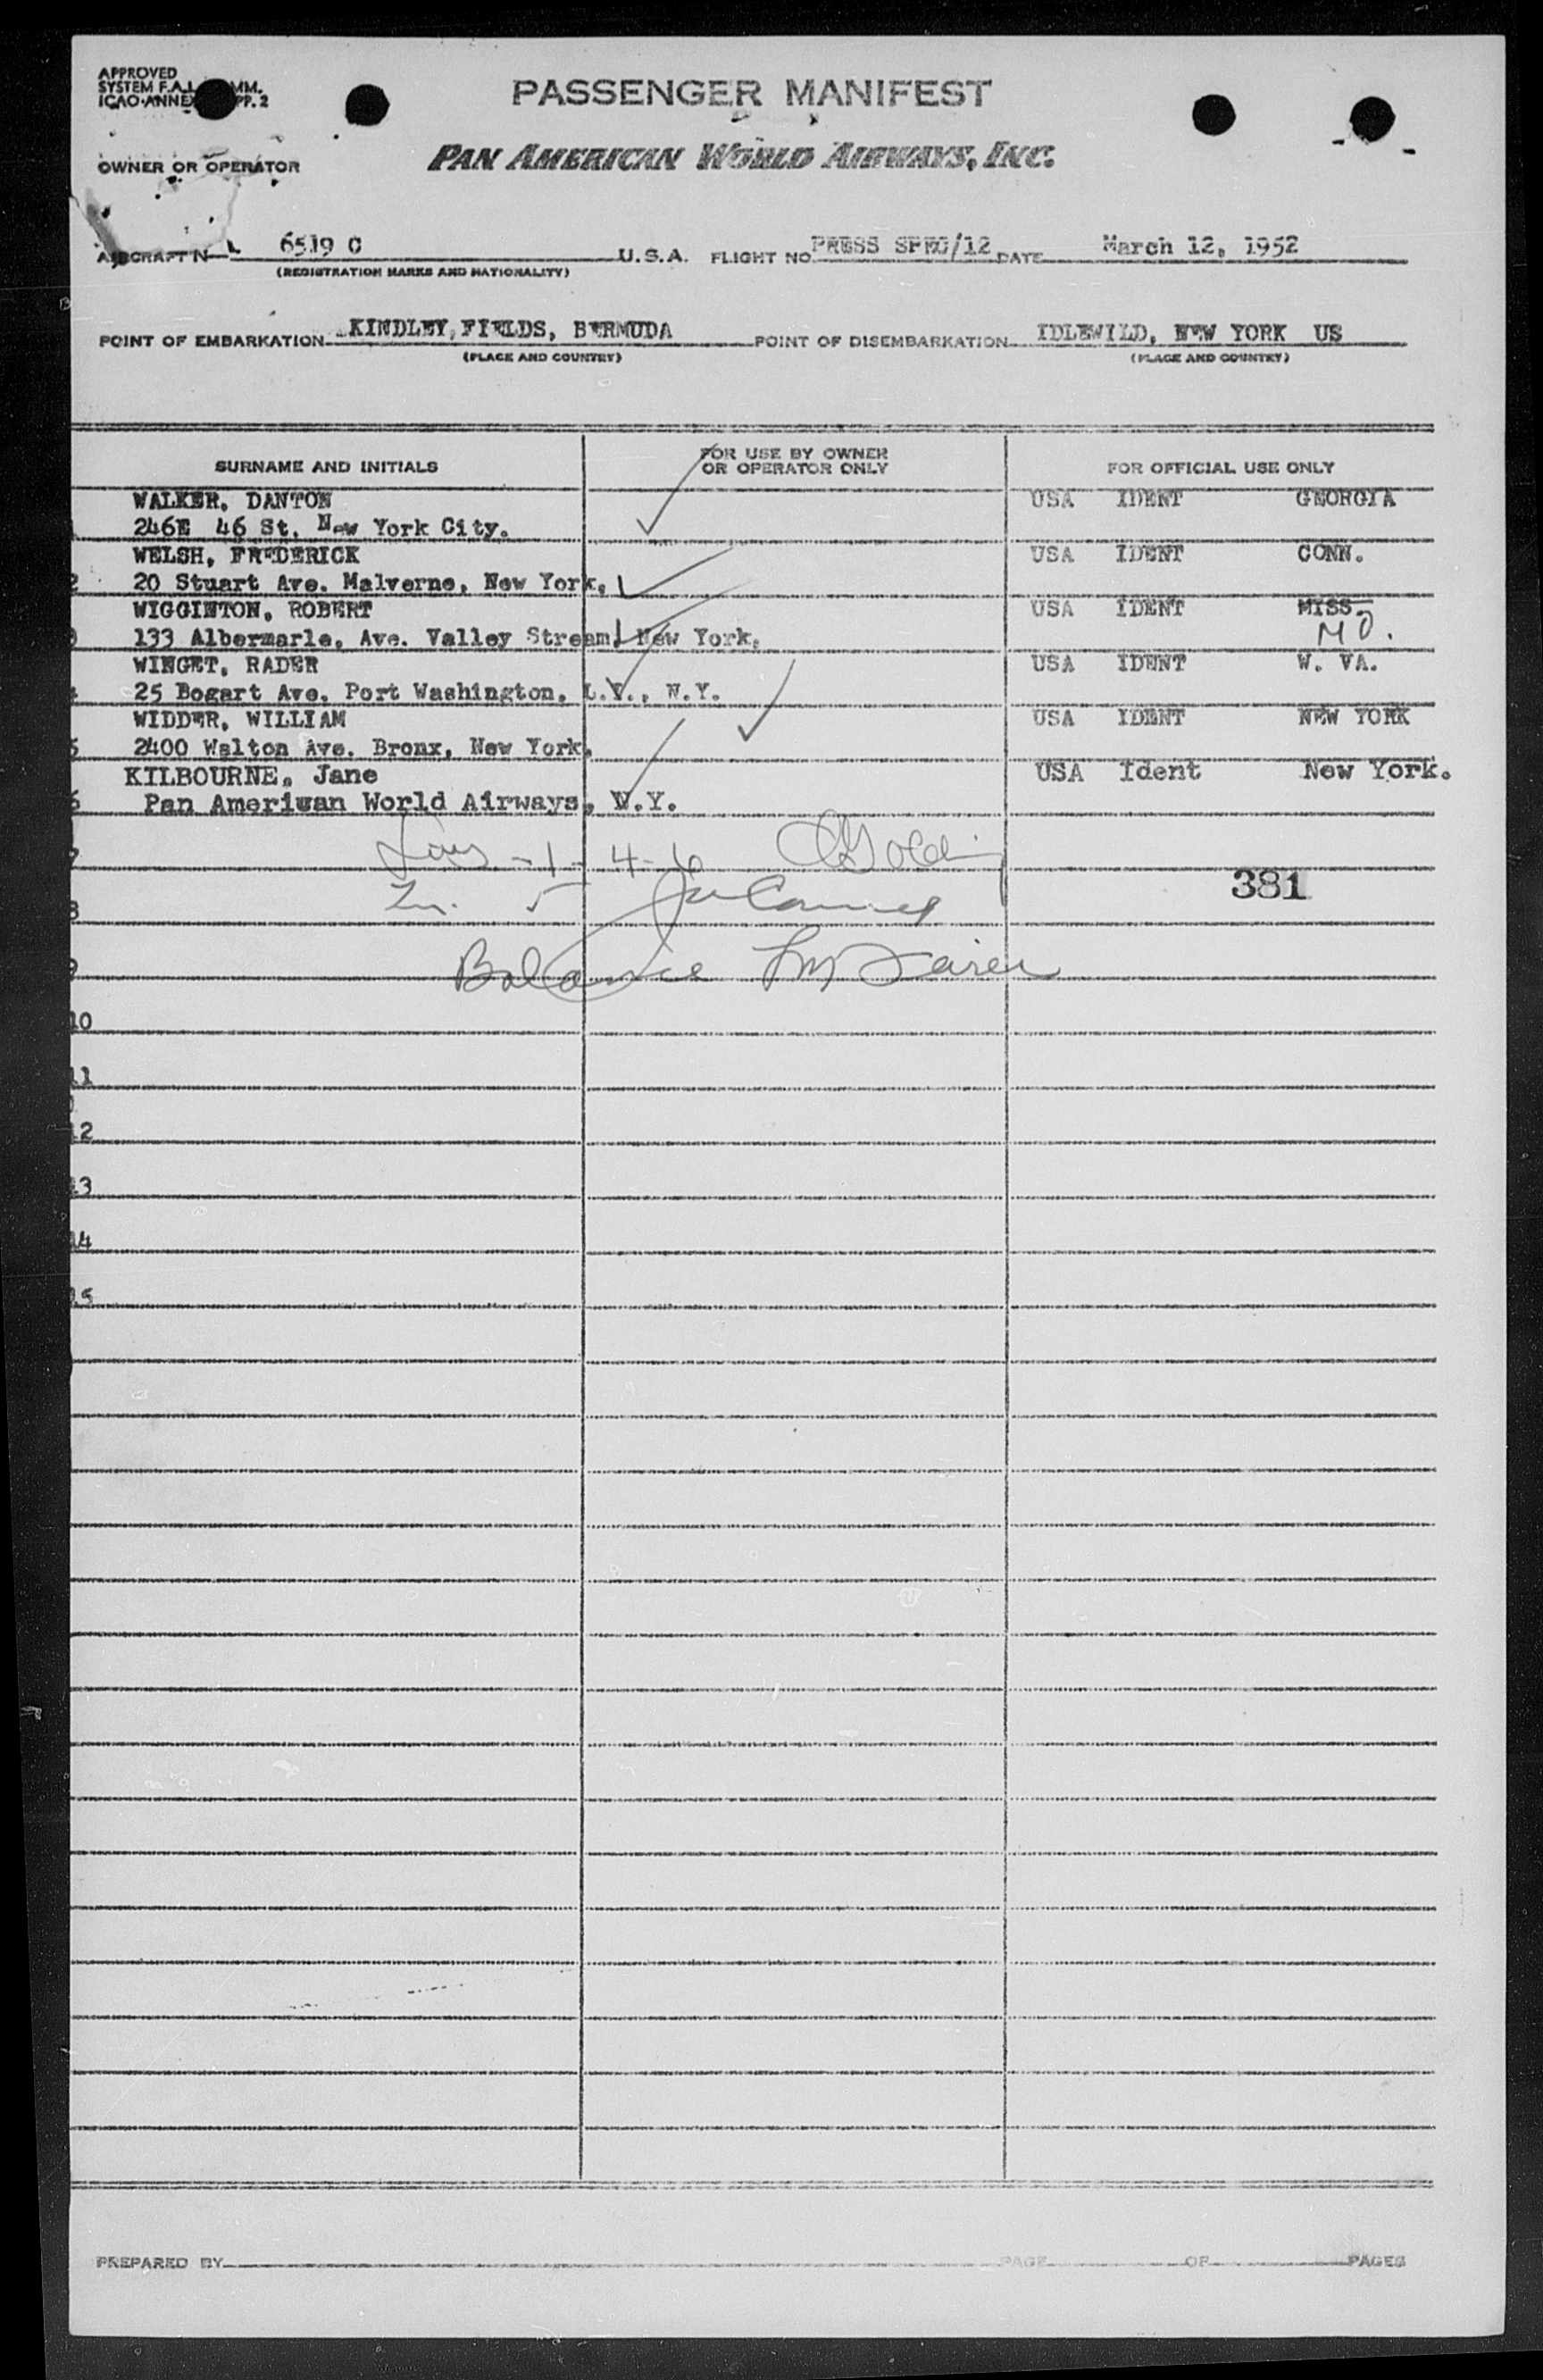 APPROVED
SYSTEM F.A.L. MM.
ICAO-ANNEX PP. 2
PASSENGER MANIFEST
OWNER OR OPERATOR
PAN AMERICAN WORLD AIRWAYS, INC.
AIRCRAFT N 6519 C U.S.A. FLIGHT NO. PRESS SPEC/12 DATE March 12, 1952
(REGISTRATION MARKS AND NATIONALITY)
POINT OF EMBARKATION KINDLEY, FIELDS, BERMUDA POINT OF DISEMBARKATION IDLEWILD, NEW YORK US
(PLACE AND COUNTRY) (PLACE AND COUNTRY)
SURNAME AND INITIALS FOR USE BY OWNER OR OPERATOR ONLY FOR OFFICIAL USE ONLY
WALKER, DANTON USA IDENT GEORGIA
246E 46 St. New York City.
WELSH, FREDERICK USA IDENT CONN.
2 20 Stuart Ave. Malverne, New York,
WIGGINTON, ROBERT USA IDENT MISS.
133 Albermarle, Ave. Valley Stream, New York, MO.
WINGET, RADER USA IDENT W. VA.
25 Bogart Ave, Port Washington, L.I., N.Y.
WIDDER, WILLIAM USA IDENT NEW YORK
5 2400 Walton Ave. Bronx, New York,
KILBOURNE, Jane USA Ident New York.
6 Pan Ameriwan World Airways, N.Y.
7 - 1 - 4-6
8 5 381
9 Balance
10
11
12
13
14
15
PREPARED BY PAGE OF PAGES